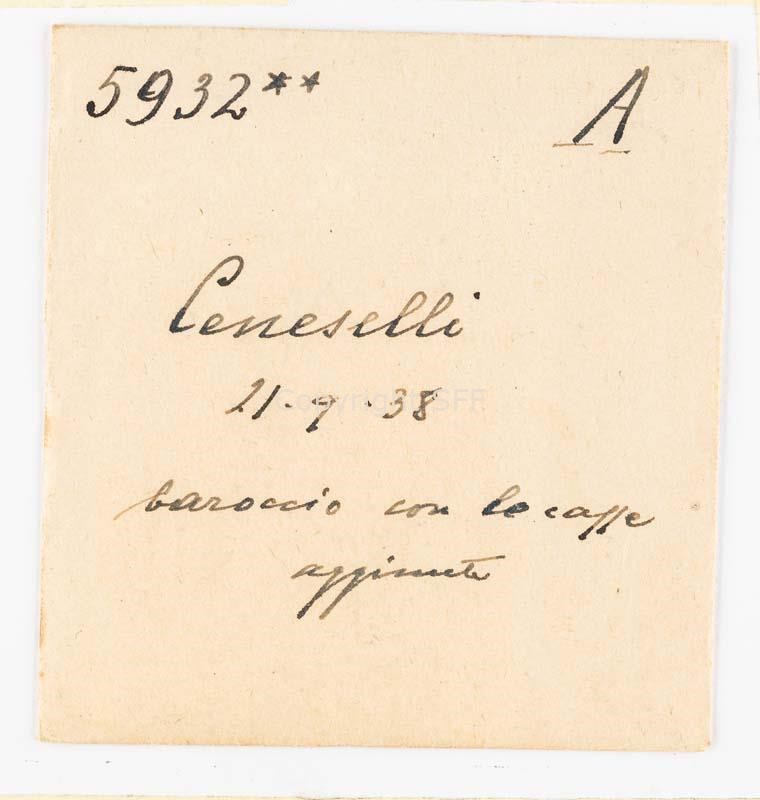 5932** A
Ceneselli
21-9-38
Copyright SFF
baroccio con le casse
aggiunte